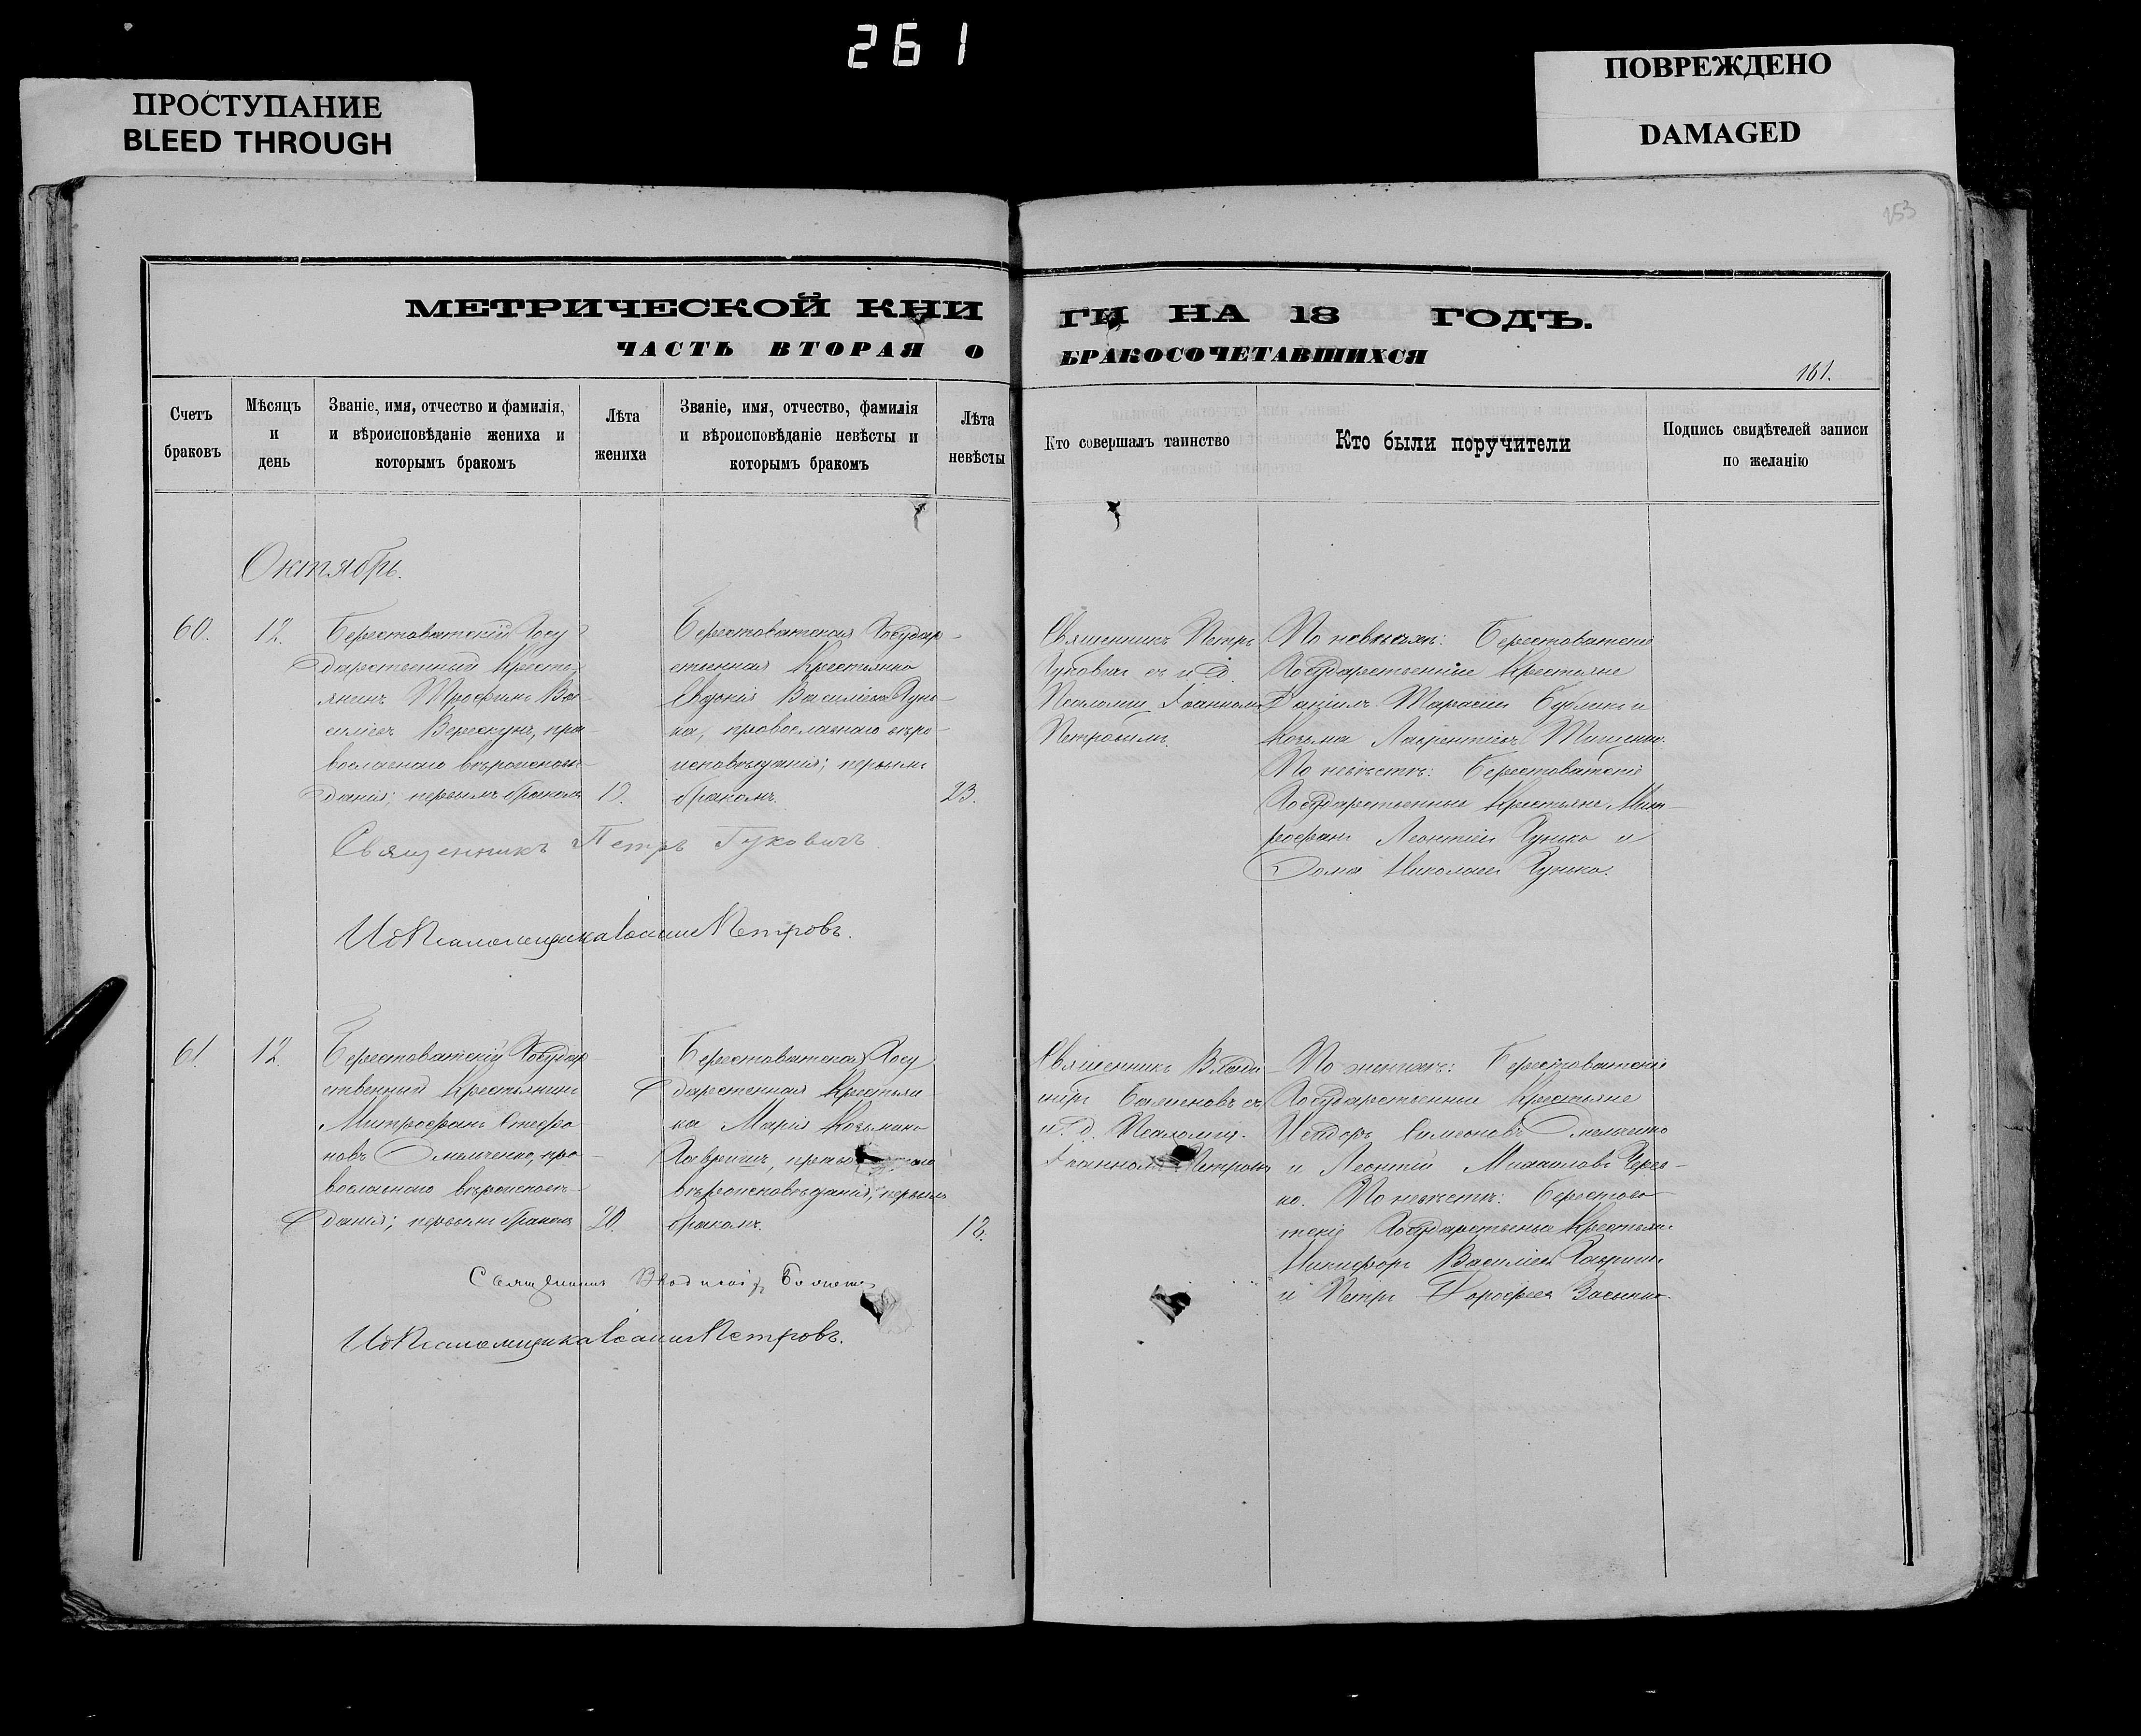 261
ПРОСТУПАНИЕ
BLEED THROUGH
ПОВРЕЖДЕНО
DAMAGED
153
МЕТРИЧЕСКОЙ КНИ
ГИ НА 18 ГОДЪ.
ЧАСТЬ ВТОРАЯ О
БРАКОСОЧЕТАВШИХСЯ
161.
Счетъ
браковъ
Мѣсяцъ
и
день
Званіе, имя, отчество и фамилія,
и вѣроисповѣданіе жениха и
которымъ бракомъ
Лѣта
жениха
Званіе, имя, отчество, фамилія
и вѣроисповѣданіе невѣсты и
которымъ бракомъ
Лѣта
невѣсты
Кто совершалъ таинство
Кто были поручители
Подпись свидѣтелей записи
по желанію
Октябрь.
60.
12.
Берестоватскій Госу
дарственный Кресть
янинъ Трофимъ Ва
силіевъ Верескунъ, пра
вославнаго вѣроисповѣ
данія; первымъ бракомъ
19.
Берестоватская Государ
ственная Крестьянка
Евдокія Василіева Гунь
ка, православнаго вѣро
исповѣданія; первымъ
бракомъ.
23.
Священникъ Петръ
Гуковичъ съ и. д.
Псаломщ. Іоанномъ
Петровымъ.
Берестоватскіе
Государственные Крестьяне
Даніилъ Тарасіевъ Бублик и
Козьма Лаврентіевъ
По невѣстѣ: Берестоватскіе
Государственные Крестьяне Мит
рофанъ Леонтіевъ Гунька и
Фома Николаевъ Гунька.
Священникъ Петръ Гуковичъ
ИдПсаломщика Іоаннъ Петровъ.
61.
12.
Берестоватскій Государ
ственный Крестьянинъ
Митрофанъ Стефа
новъ Омельченко, пра
вославнаго вѣроисповѣ
данія; первымъ бракомъ
20.
Берестоватская Госу
дарственная Крестьян
ка Марія Козьмина
Гавришъ,
вѣроисповѣданія; первымъ
бракомъ.
18.
Священникъ Влади
міръ Баженовъ съ
и. д. Псаломщ.
Іоанномъ Петровы
По женихѣ: Берестоватскіе
Государственные Крестьяне
Исидоръ Симеоновъ Омельченко
и Леонтій Михаиловъ
ко. По невѣстѣ: Берестова
тскіе Государственные Крестьяне
Никифоръ Василіевъ Гавришъ
и Петръ Дорофеевъ
Священникъ Владиміръ Баженовъ
ИдПсаломщика Іоаннъ Петровъ.